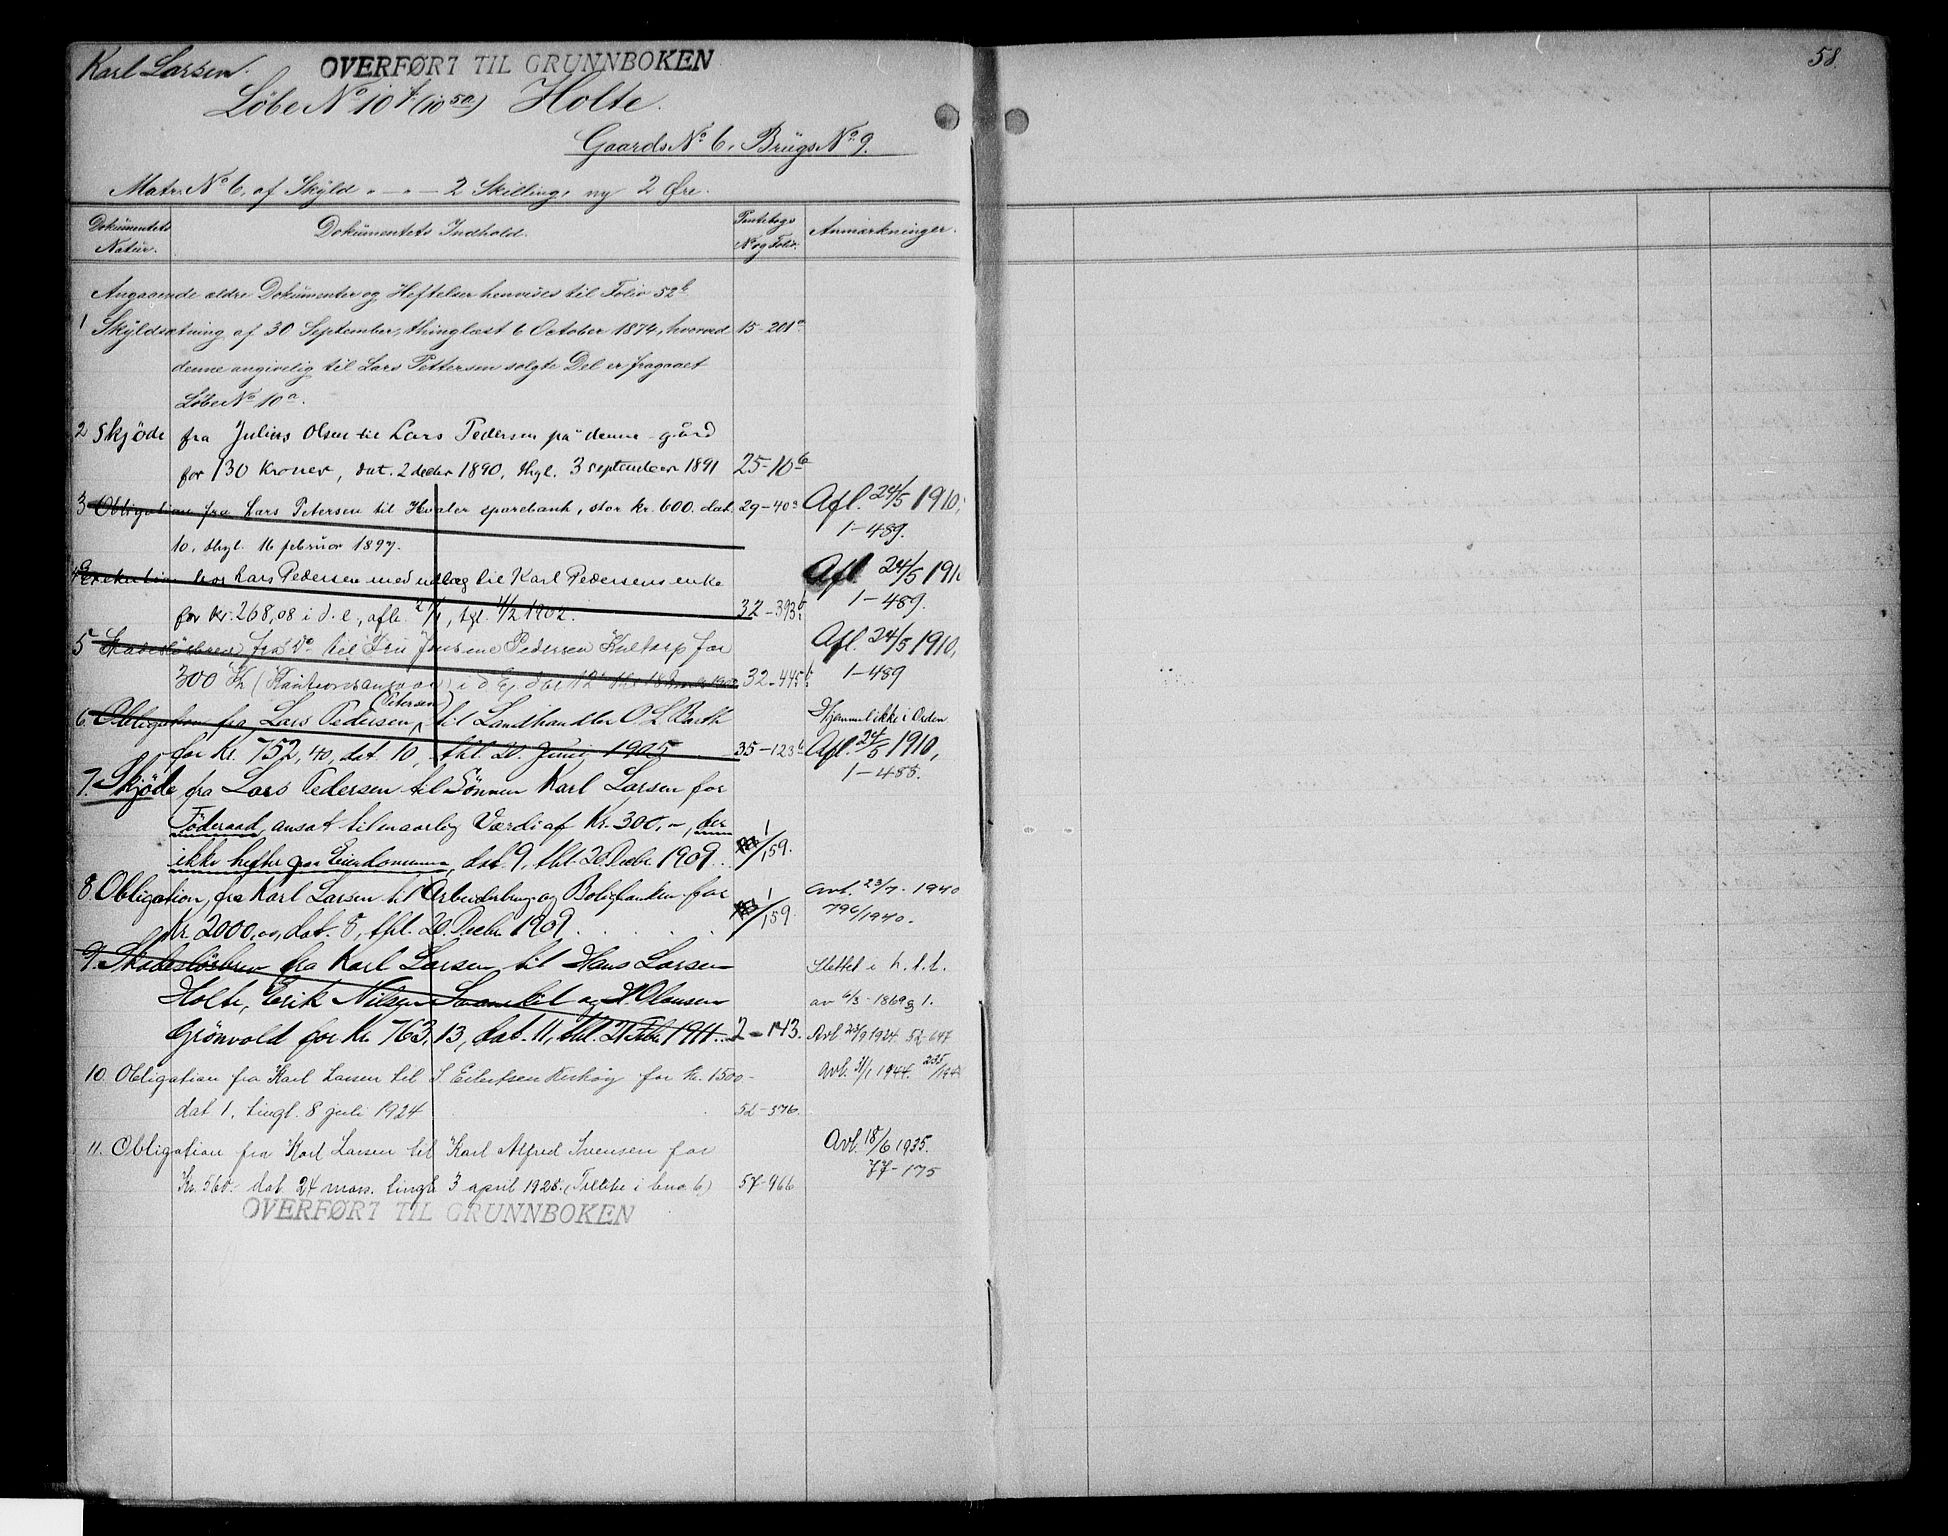 Karl Larsen. OVERFØRT TIL GRUNNBOKEN 58.
Løbe No 10 f (10 5a) Holte.
Gaards No 6, Brügs No 9.
Matr. No 6, af Skyld " - " - 2 Skilling, ny 2 Øre.
Dokümentets Natür. Dokümentets Indhold. Pantebogs No og Folio. Anmærkninger.
Angaaende ældre Dokümenter og Heftelser henvises til Folio 52 b
1 Skyldsætning af 30 September, thinglæst 6 October 1874, hvorved 15-201a
denne angivelig til Lars Pettersen solgte Del er fragaaet
Løbe No 10 a.
2 Skjøde fra Julius Olsen til Lars Pedersen på denne gård
for 130 kroner, dat. 2 decbr 1890, thgl. 3 september 1891 25-10 b
3 Obligation fra Lars Petersen til Hvaler sparebank, stor kr. 600. dat. 29-40a Afl. 24/5 1910,
10, thgl. 16 februar 1897. 1-489.
4 Exekution hos Lars Pedersen med udlæg til Karl Pedersens enke Afl 24/5 191
for kr. 268,08 i d. e., afh. 1/2 1902. 32-393 1-489.
5 Skadesløsbrev fra Do til Fru Pedersen for Afl. 24/5 1910,
300 Kr (Kautionsansvar) 32-445 1-489
(Petersen)
6. Obligation fra Lars Pedersen, til Landhandler O L Barth Hjemmel ikke i Orden
for Kr. 752,40, dat. 10, thl. 20. Juni 1905 35-123 b Afl. 24/5 1910,
7. Skjøde fra Lars Pedersen til Sønnen Karl Larsen for 1-488.
Føderaad, ansat til maarlig Værdi af Kr. 300,-, der
ikke hefter paa Eiendommen, dat. 9, thl. 20 Decbr. 1909. 1/159.
8 Obligation, fra Karl Larsen til Arbeiderbrug og Boligbanken for Avl. 23/7. 1940
Kr. 2000,00, dat. 8, thl. 20 Decbr 1909. 1/159. 796/1940.
9. Skadesløsbrev fra Karl Larsen til Hans Larsen Slettet i h. t. l.
Holte, Erik Nilsen og H Olausen av 6/3-1869 § 1.
Grønvold for Kr. 763,13, dat. 11, thl. 21 Febr. 1911. 2-143. Avl 23/9 1924. 52-647
10. Obligation fra Karl Larsen til S. Eilertsen for kr. 1500- Avl. 31/1 1944. 235/1944
dat 1, tingl. 8 juli 1924 52-376.
11. Obligation fra Karl Larsen til Karl Alfred Ivensen for Avl. 18/6 1935.
Kr. 560.- dat. 24 mars. tingl. 3 april 1928. 57-966 77-175
OVERFØRT TIL GRUNNBOKEN